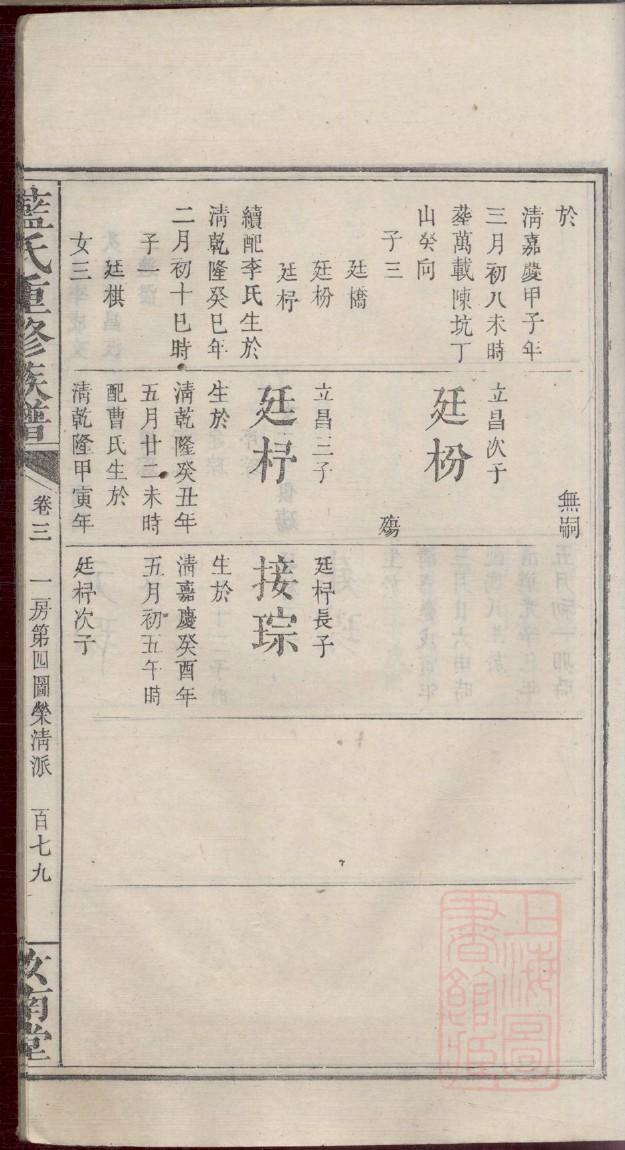 於
清嘉慶甲子年
三月初八未時
塟萬載陳坑丁
山癸向
子三
廷橋
廷枌
廷杼
續配李氏生於
清乾隆癸巳年
二月初十巳時
子一
廷棋
女三
無嗣
立昌次子
廷枌
殤
立昌三子
廷杼
生於
清乾隆癸丑年
五月廿二未時
配曹氏生於
清乾隆甲寅年
廷杼長子
接琮
生於
清嘉慶癸酉年
五月初五午時
廷杼次子
藍氏重修族譜
卷三
一房第四圖榮清派
百七九
汝南堂
上海圖
書館藏